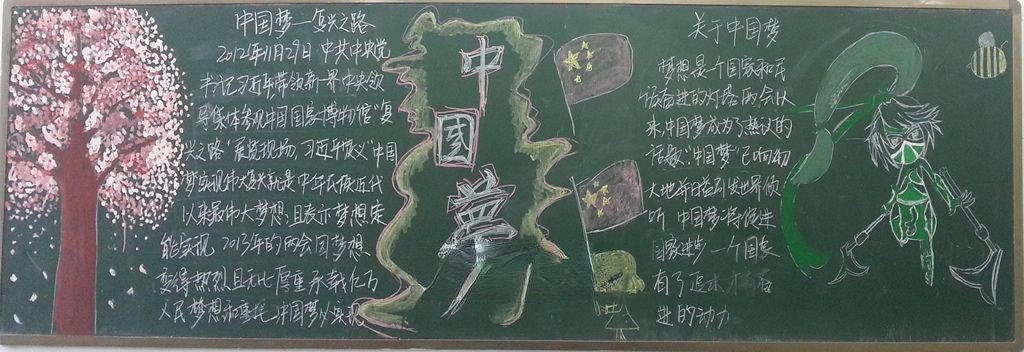 中国梦—复兴之路
2012年11月29日 中共中央党
书记习近平带领新一界中央领
导集体参观中国国家博物馆"复
兴之路"展览现场，习近平定义"中国
梦"实现伟大复兴就是中华民族近代
以来最伟大梦想，且表示梦想定
能实现 2013年的两会因梦想
变得热烈且无比厚重承载亿万
人民梦想和重托 中国梦必实现
中
國
夢
关于中国梦
梦想是一个国家和民
族奋进的灯塔两会以
来中国梦成为了热议的
话题"中国梦"已响彻
大地并目 世界倾
听 中国梦将促进
国家进步 一个国家
有了追求 有
进的动力